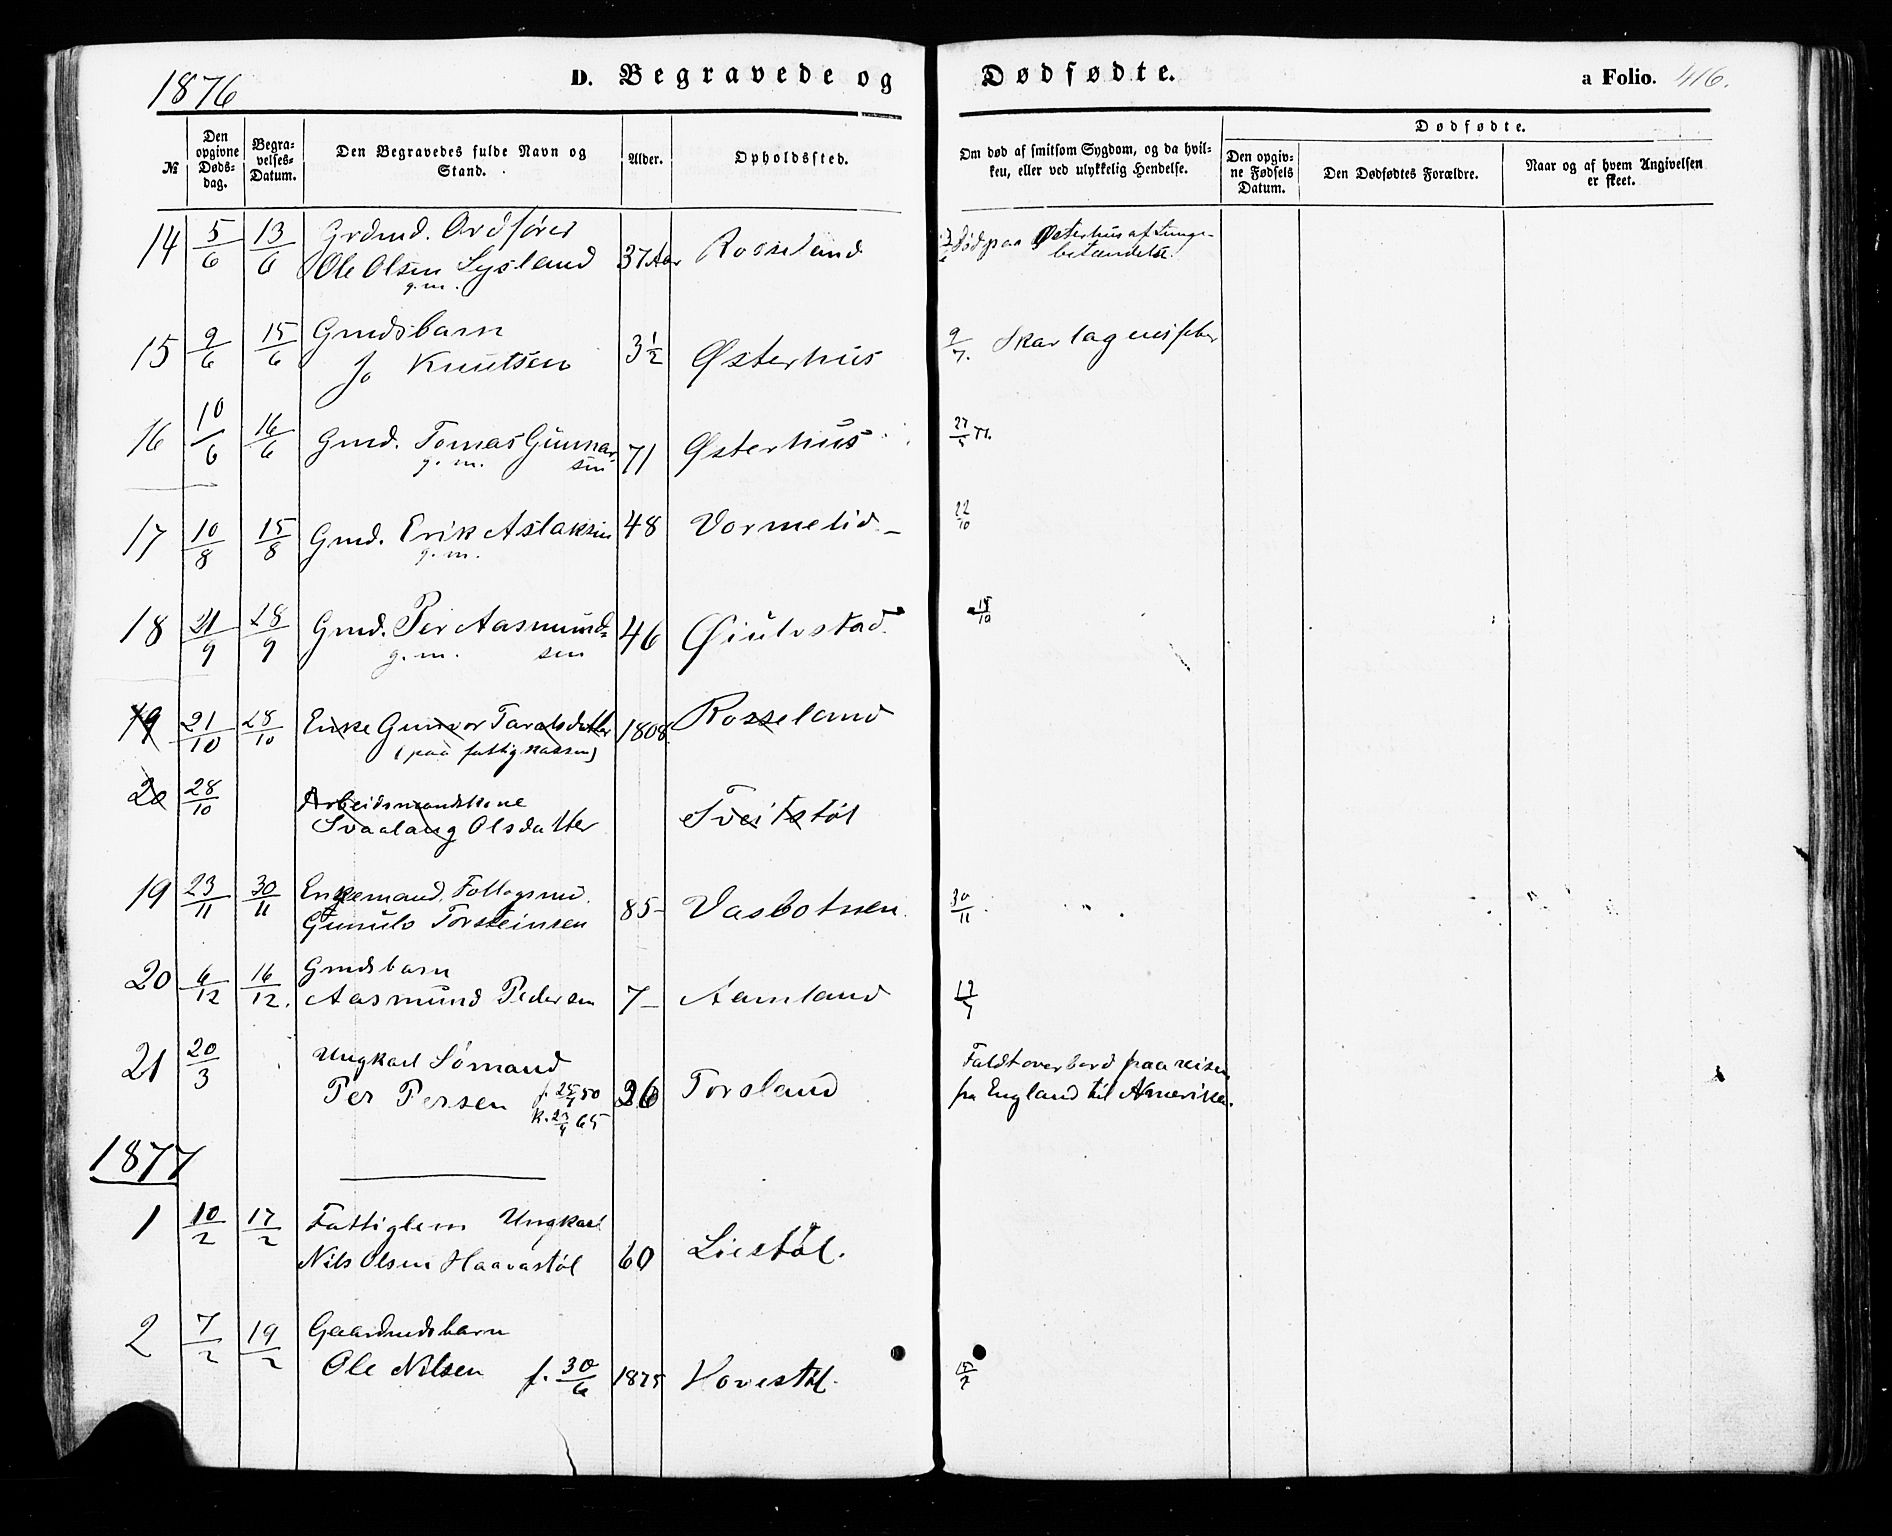 1876
D. Begravede og Dødfødte.
a Folio. 416.
№
Den opgivne Døds-dag.
Begra-velses-Datum.
Den Begravedes fulde Navn og Stand.
Alder.
Opholdssted.
Om død af smitsom Sygdom, og da hvil-ken, eller ved ulykkelig Hendelse.
Dødfødte.
Den opgiv-ne Fødsels Datum.
Den Dødfødtes Forældre.
Naar og af hvem Angivelsen er skeet.
14 5/6 13/6 Grdmd. Ordfører
Ole Olsen Lysland 37 Aar Rosseland Død paa Østerhus af Lunge-
g.m. betændelse.
15 9/6 15/6 Gmdsbarn
Jo Knutsen 3½ Østerhus 9/7. Skarlagensfeber
16 10/6 16/6 Gmd. Tomas Gunnar- 71 Østerhus
g.m. sen
17 10/8 15/8 Gmd. Erik Aslaksen 48 Vormelid 22/10
g.m.
18 21/9 28/9 Gmd. Per Aasmund- 46 Øiulvstad 15/10
g.m. sen
19 21/10 28/10 Enke Gunvor Taralsdatter 1808 Rosseland
(paa fattigkassen)
20 28/10 Arbeidsmandskone
Svaalaug Olsdatter Tveitstøl
19 23/11 30/11 Enkemand. Follogsmd.
Gunulv Torsteinsen 85 Vasbotnen 30/11
20 6/12 16/12. Gmdsbarn
Aasmund Pedersen 7 Aamland
21 20/3 Ungkarl Sømand Faldt overbord paa reisen
Per Persen f. 25/1 50 26 Torsland fra England til Amerika.
k. 23/4 65
1877
1 10/2 17/2 Fattiglem Ungkarl
Nils Olsen Haavastøl 60 Liestøl.
2 7/2 19/2 Gaardmdsbarn
Ole Nilsen f. 30/6 1875 Hovestøl. 15/2